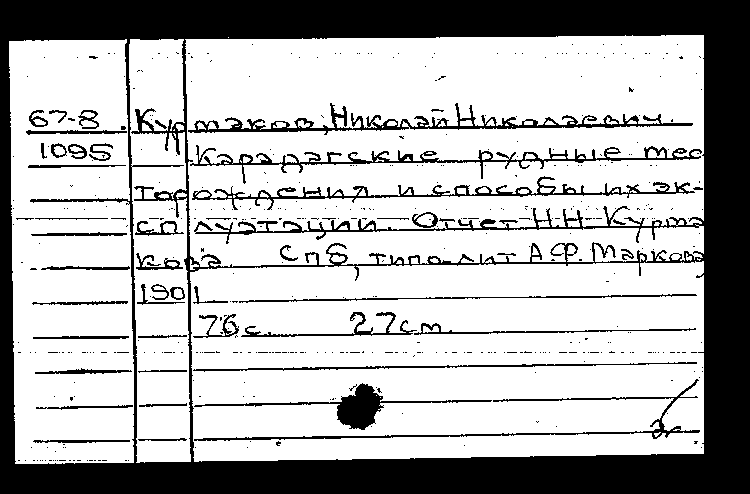 67-8 Куртаков, Николай Николаевич.
1095 Карадагские рудные мес
торождения и способы их эк-
сплуатации. Отчет Н.Н. Курта
кова. Спб, типо-лит А.Ф. Маркова,
1901
76 с. 27 см.